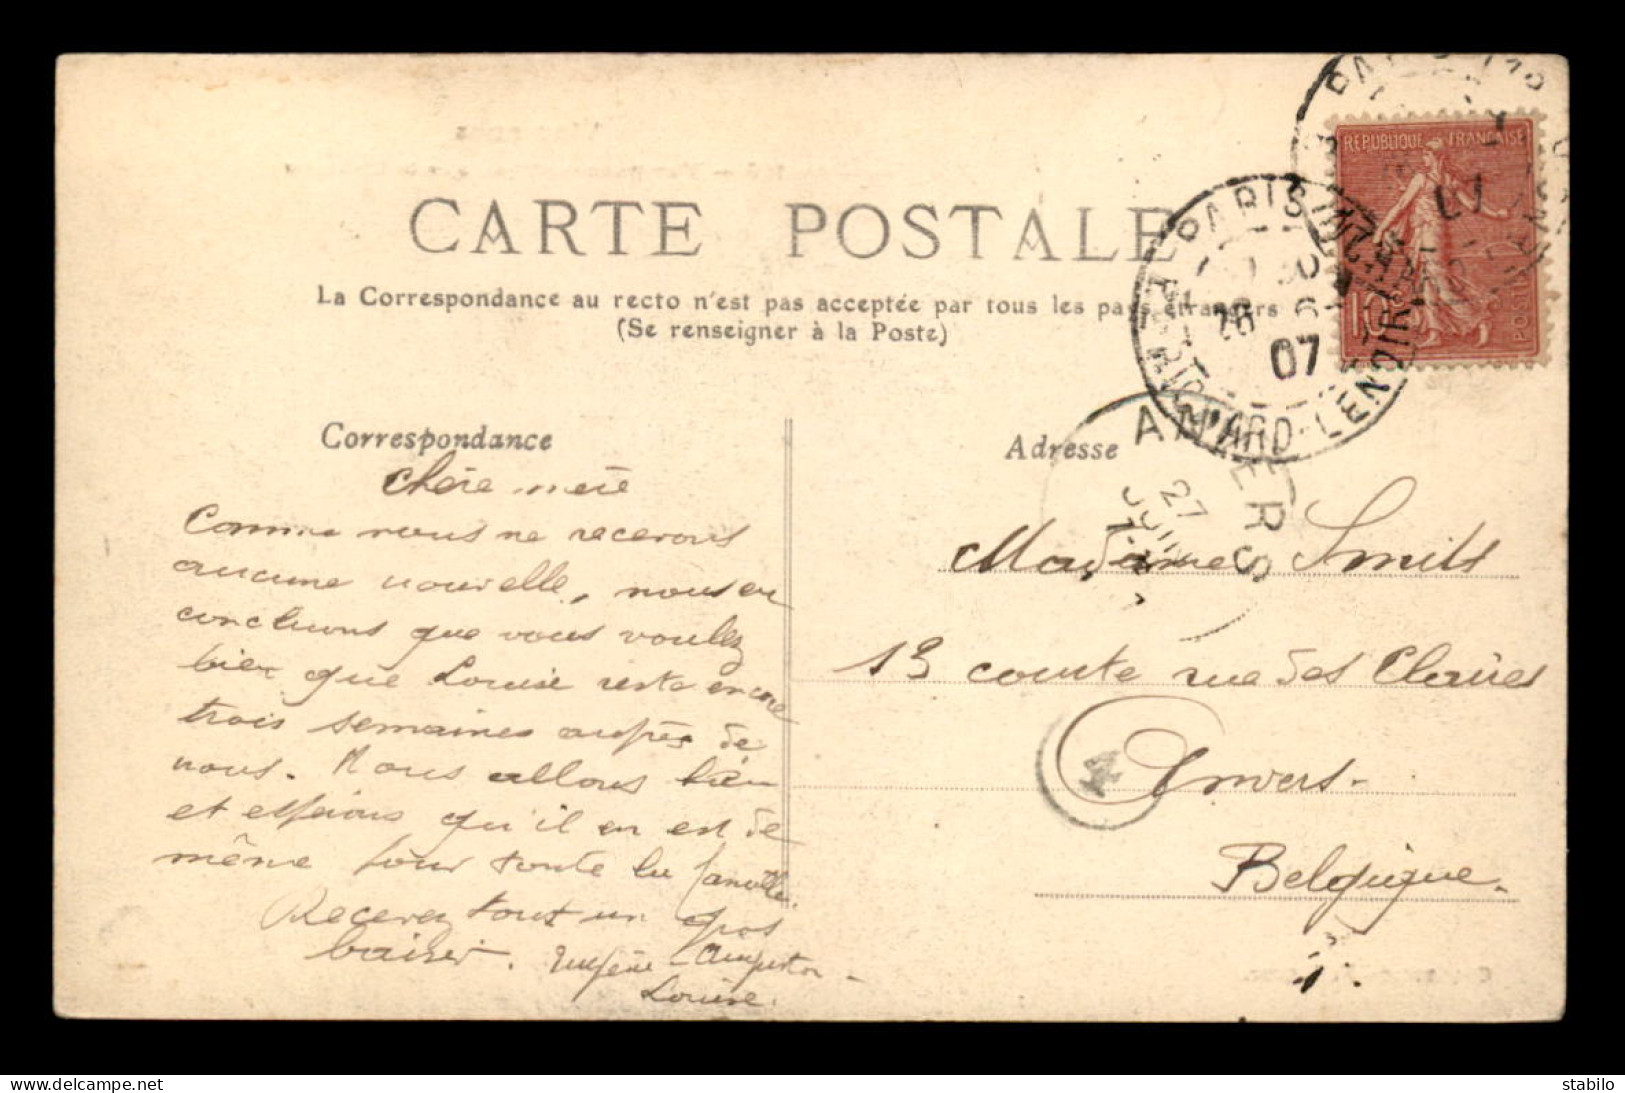 CARTE POSTALE
La Correspondance au recto n'est pas acceptée par tous les pays étrangers
(Se renseigner à la Poste)
REPUBLIQUE FRANÇAISE
POSTES
PARIS
RICHARD-LENOIR
07
Correspondance
Chère mère
Comme nous ne recevons
aucune nouvelle, nous en
concluons que vous voulez
bien que Louise reste encore
trois semaines auprès de
nous. Nous allons bien
et espérons qu'il en est de
même pour toute la famille.
Recevez tout un gros
baiser. Eugène - Augustin -
Louise.
Adresse
ANVERS
27 JUIN
Madame Smits
13 courte rue des Claires
Anvers -
4
Belgique.
stabilo